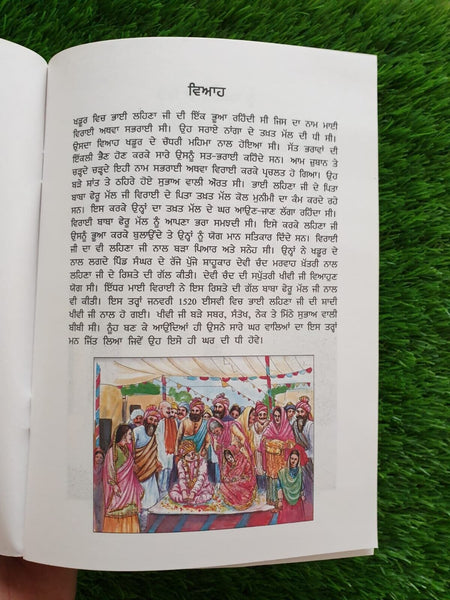 ਵਿਆਹ
ਖਡੂਰ ਵਿਚ ਭਾਈ ਲਹਿਣਾ ਜੀ ਦੀ ਇੱਕ ਭੂਆ ਰਹਿੰਦੀ ਸੀ ਜਿਸ ਦਾ ਨਾਮ ਮਾਈ
ਵਿਰਾਈ ਅਥਵਾ ਸਭਰਾਈ ਸੀ। ਉਹ ਸਰਾਏ ਨਾਂਗਾ ਦੇ ਤਖ਼ਤ ਮੱਲ ਦੀ ਧੀ ਸੀ।
ਉਸਦਾ ਵਿਆਹ ਖਡੂਰ ਦੇ ਚੌਧਰੀ ਮਹਿਮਾ ਨਾਲ ਹੋਇਆ ਸੀ। ਸੱਤ ਭਰਾਵਾਂ ਦੀ
ਇੱਕਲੀ ਭੈਣ ਹੋਣ ਕਰਕੇ ਸਾਰੇ ਉਸਨੂੰ ਸਤ-ਭਰਾਈ ਕਹਿੰਦੇ ਸਨ। ਆਮ ਜ਼ੁਬਾਨ ਤੇ
ਚੜ੍ਹਦੇ ਚੜ੍ਹਦੇ ਇਹੀ ਨਾਮ ਸਭਰਾਈ ਅਥਵਾ ਵਿਰਾਈ ਕਰਕੇ ਪ੍ਰਚਲਤ ਹੋ ਗਿਆ। ਉਹ
ਬੜੇ ਸ਼ਾਂਤ ਤੇ ਠਹਿਰੇ ਹੋਏ ਸੁਭਾਅ ਵਾਲੀ ਔਰਤ ਸੀ। ਭਾਈ ਲਹਿਣਾ ਜੀ ਦੇ ਪਿਤਾ
ਬਾਬਾ ਫੇਰੂ ਮੱਲ ਜੀ ਵਿਰਾਈ ਦੇ ਪਿਤਾ ਤਖ਼ਤ ਮੱਲ ਕੋਲ ਮੁਨੀਮੀ ਦਾ ਕੰਮ ਕਰਦੇ ਰਹੇ
ਸਨ। ਇਸ ਕਰਕੇ ਉਨ੍ਹਾਂ ਦਾ ਤਖ਼ਤ ਮੱਲ ਦੇ ਘਰ ਆਉਣ-ਜਾਣ ਲੱਗਾ ਰਹਿੰਦਾ ਸੀ।
ਵਿਰਾਈ ਬਾਬਾ ਫੇਰੂ ਮੱਲ ਨੂੰ ਆਪਣਾ ਭਰਾ ਸਮਝਦੀ ਸੀ। ਇਸੇ ਕਰਕੇ ਲਹਿਣਾ ਜੀ
ਉਸਨੂੰ ਭੂਆ ਕਰਕੇ ਬੁਲਾਉਂਦੇ ਤੇ ਉਨ੍ਹਾਂ ਨੂੰ ਯੋਗ ਮਾਨ ਸਤਿਕਾਰ ਦਿੰਦੇ ਸਨ। ਵਿਰਾਈ
ਜੀ ਦਾ ਵੀ ਲਹਿਣਾ ਜੀ ਨਾਲ ਬੜਾ ਪਿਆਰ ਅਤੇ ਸਨੇਹ ਸੀ। ਉਨ੍ਹਾਂ ਨੇ ਖਡੂਰ ਦੇ
ਨਾਲ ਲਗਦੇ ਪਿੰਡ ਸੰਘਰ ਦੇ ਰੱਜੇ ਪੁੱਜੇ ਸਾਹੂਕਾਰ ਦੇਵੀ ਚੰਦ ਮਰਵਾਹ ਖੱਤਰੀ ਨਾਲ
ਲਹਿਣਾ ਜੀ ਦੇ ਰਿਸ਼ਤੇ ਦੀ ਗੱਲ ਕੀਤੀ। ਦੇਵੀ ਚੰਦ ਦੀ ਸਪੁੱਤਰੀ ਖੀਵੀ ਜੀ ਵਿਆਹੁਣ
ਯੋਗ ਸੀ। ਇੱਧਰ ਮਾਈ ਵਿਰਾਈ ਨੇ ਇਸ ਰਿਸ਼ਤੇ ਦੀ ਗੱਲ ਬਾਬਾ ਫੇਰੂ ਮੱਲ ਜੀ ਨਾਲ
ਵੀ ਕੀਤੀ। ਇਸ ਤਰ੍ਹਾਂ ਜਨਵਰੀ 1520 ਈਸਵੀ ਵਿਚ ਭਾਈ ਲਹਿਣਾ ਜੀ ਦੀ ਸ਼ਾਦੀ
ਖੀਵੀ ਜੀ ਨਾਲ ਹੋ ਗਈ। ਖੀਵੀ ਜੀ ਬੜੇ ਸਬਰ, ਸੰਤੋਖ, ਨੇਕ ਤੇ ਮਿੱਠੇ ਸੁਭਾਅ ਵਾਲੀ
ਬੀਬੀ ਸੀ। ਨੂੰਹ ਬਣ ਕੇ ਆਉਂਦਿਆਂ ਹੀ ਉਸਨੇ ਸਾਰੇ ਘਰ ਵਾਲਿਆਂ ਦਾ ਇਸ ਤਰ੍ਹਾਂ
ਮਨ ਜਿੱਤ ਲਿਆ ਜਿਵੇਂ ਉਹ ਇਸੇ ਹੀ ਘਰ ਦੀ ਧੀ ਹੋਵੇ।